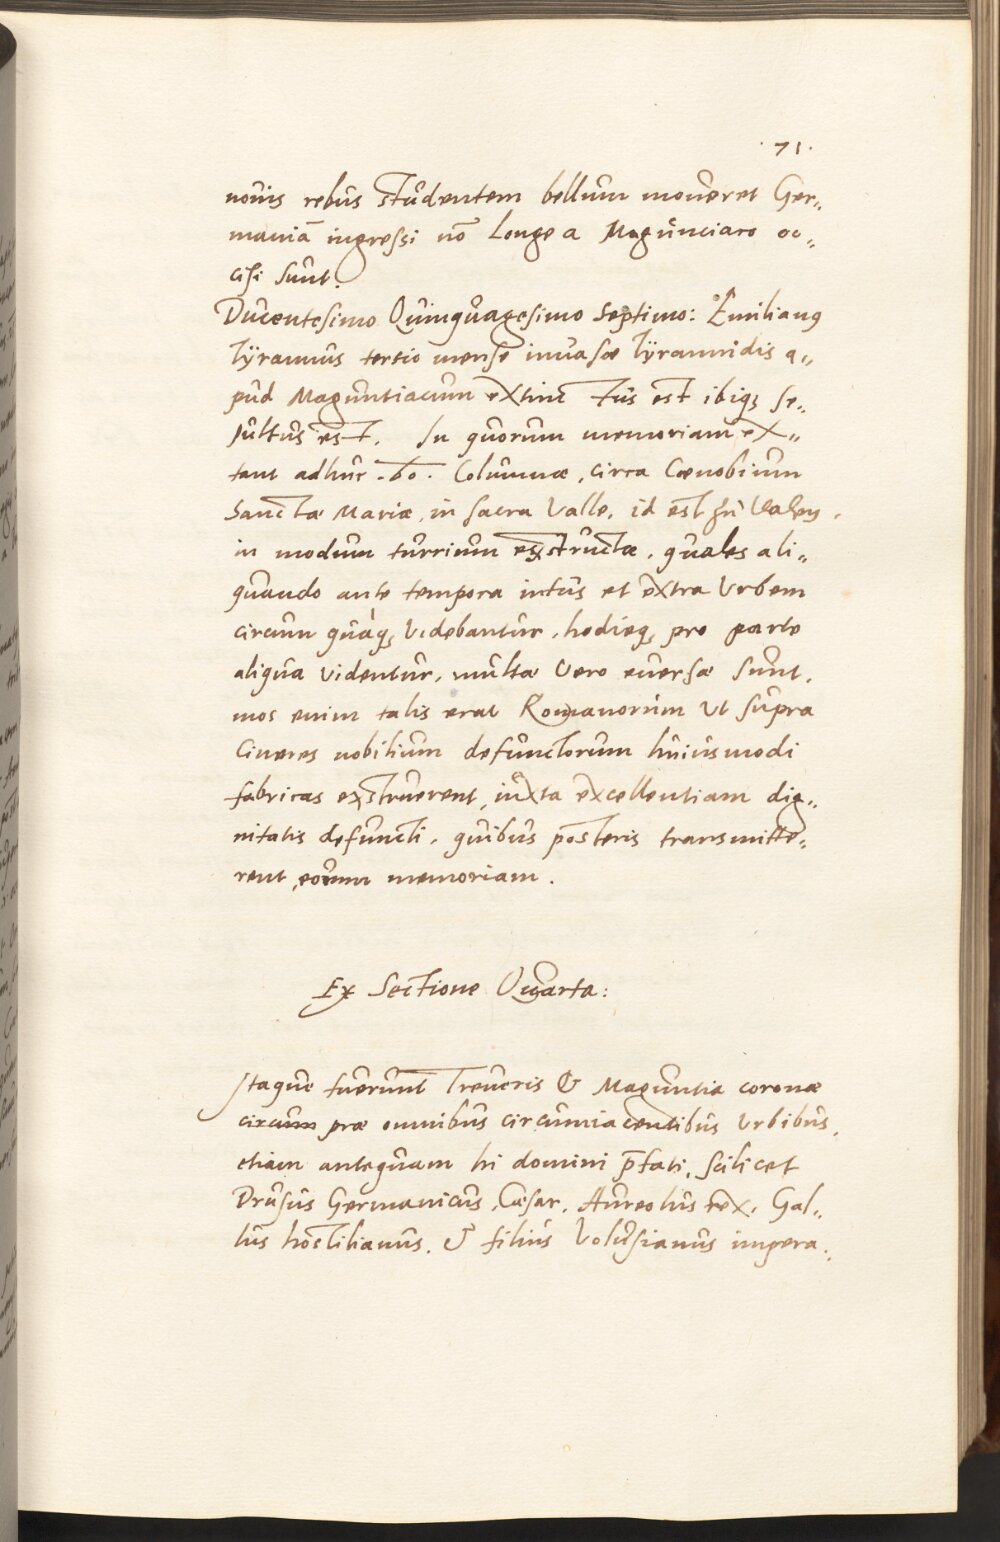 .71.
nouis rebus studentem bellum moueret Ger„
maniā ingressi nō Longe a Maguntiaco oc„
cisi sunt.
Ducentesimo Quinquagesimo Septimo: Emilianus
Tyrannus tertio mense inuasæ Tyrannidis a„
pud Maguntiacum extinctus est ibiq₃ se„
pultus est. In quorum memoriam ex„
tant adhuc Columnæ, circa Cœnobium
Sanctæ Mariæ, in sacra Valle, id est
in modum turrium exstructæ, quales ali„
quando ante tempora intus et extra Urbem
circum quàq₃ Videbantur, hodieq₃ pro parte
aliqua videntur, multæ Vero euersæ sunt,
mos enim talis erat Romanorum Ut supra
Cineres nobilium defunctorum huiusmodi
fabricas exstruerent, iuxta excellentiam dig„
nitatis defuncti, quibus posteris transmitte„
rent, eorum memoriam.
Ex Sectione Quarta:
Itaque fuerunt Treueris & Maguntia coronæ
circum præ omnibus circumiacentibus Urbibus,
etiam antequam hi domini p̄fati, scilicet
Drusus Germanicus, Cæsar, Aureolus rex, Gal„
lus hostilianus, & filius Volusianus impera„